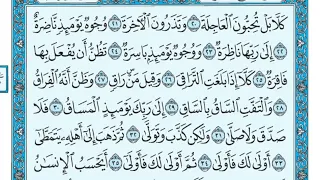 كَلَّا بَلْ تُحِبُّونَ ٱلْعَاجِلَةَ ٢٠ وَتَذَرُونَ ٱلْأَخِرَةَ ٢١ وُجُوهٌ يَوْمَئِذٍ نَّاضِرَةٌ
٢٢ إِلَىٰ رَبِّهَا نَاظِرَةٌ ٢٣ وَوُجُوهٌ يَوْمَئِذٍ بَاسِرَةٌ ٢٤ تَظُنُّ أَن يُفْعَلَ بِهَا
فَاقِرَةٌ ٢٥ كَلَّا إِذَا بَلَغَتِ ٱلتَّرَاقِيَ ٢٦ وَقِيلَ مَنْ رَاقٍ ٢٧ وَظَنَّ أَنَّهُ ٱلْفِرَاقُ
٢٨ وَٱلْتَفَّتِ ٱلسَّاقُ بِٱلسَّاقِ ٢٩ إِلَىٰ رَبِّكَ يَوْمَئِذٍ ٱلْمَسَاقُ ٣٠ فَلَا
صَدَّقَ وَلَا صَلَّىٰ ٣١ وَلَٰكِن كَذَّبَ وَتَوَلَّىٰ ٣٢ ثُمَّ ذَهَبَ إِلَىٰ أَهْلِهِ يَتَمَطَّىٰ
٣٣ أَوْلَىٰ لَكَ فَأَوْلَىٰ ٣٤ ثُمَّ أَوْلَىٰ لَكَ فَأَوْلَىٰ ٣٥ أَيَحْسَبُ ٱلْإِنسَٰنُ